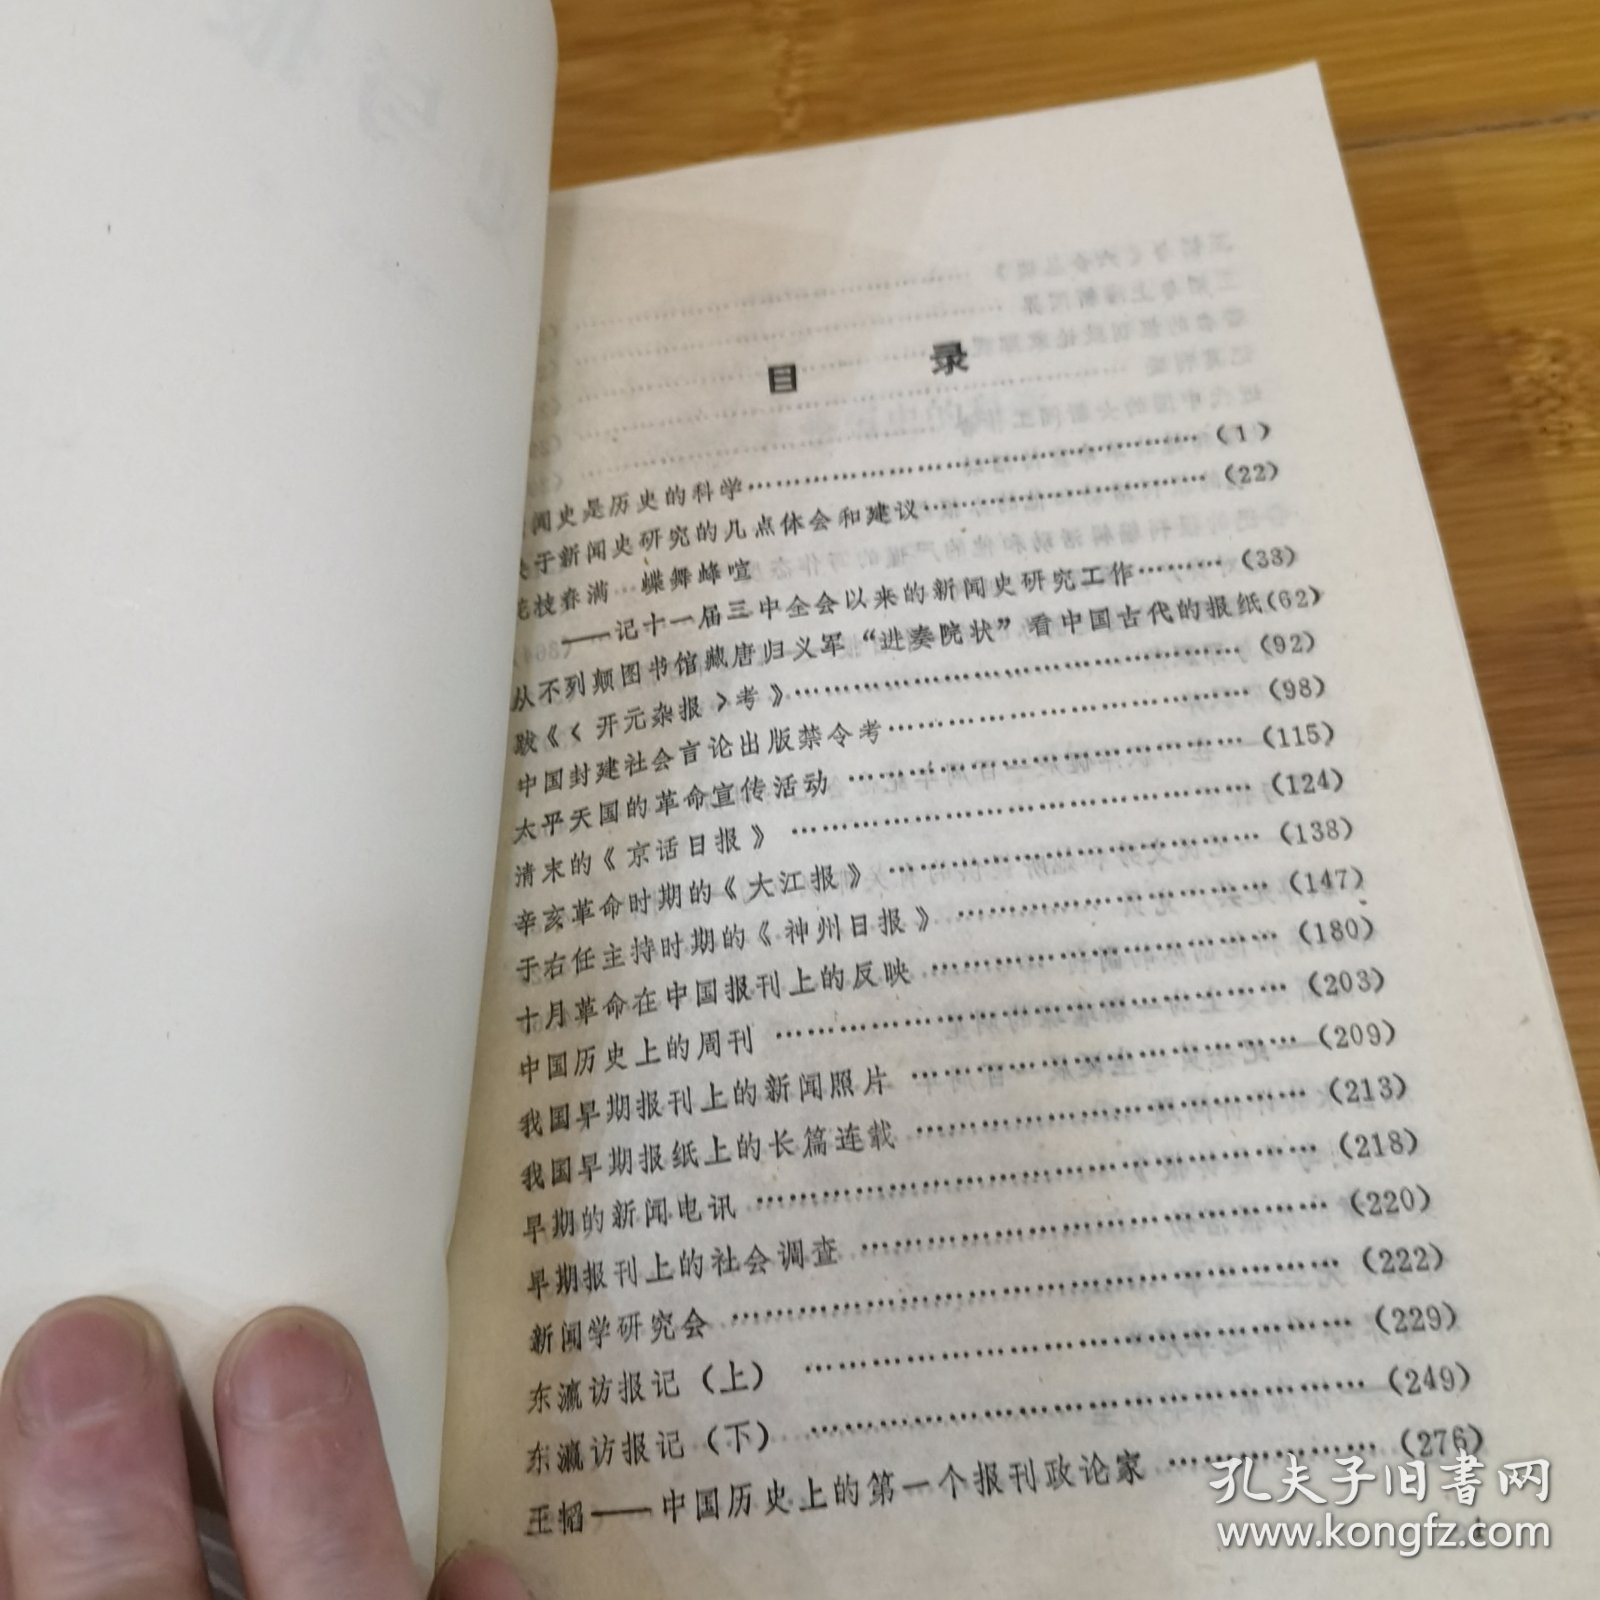 目 录
闻史是历史的科学……………………………………（1）
关于新闻史研究的几点体会和建议………………………（22）
花枝春满 蝶舞峰喧
——记十一届三中全会以来的新闻史研究工作………（33）
从不列颠图书馆藏唐归义军“进奏院状”看中国古代的报纸(62)
跋《〈开元杂报〉考》……………………………………（92）
中国封建社会言论出版禁令考………………………………（98）
太平天国的革命宣传活动………………………………（115）
清末的《京话日报》………………………………（124）
辛亥革命时期的《大江报》………………………………（138）
于右任主持时期的《神州日报》………………………（147）
十月革命在中国报刊上的反映………………………（180）
中国历史上的周刊………………………………（203）
我国早期报刊上的新闻照片………………………（209）
我国早期报纸上的长篇连载………………………（213）
早期的新闻电讯………………………………（218）
早期报刊上的社会调查………………………（220）
新闻学研究会………………………………（222）
东瀛访报记（上）………………………………（229）
东瀛访报记（下）………………………………（249）
王韬——中国历史上的第一个报刊政论家………………（276）
1
孔夫子旧书网
www.kongfz.com